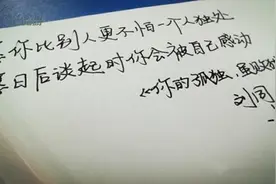 你比别人更不怕一个人独处
日后谈起时你会被自己感动
《你的孤独,虽败
刘同